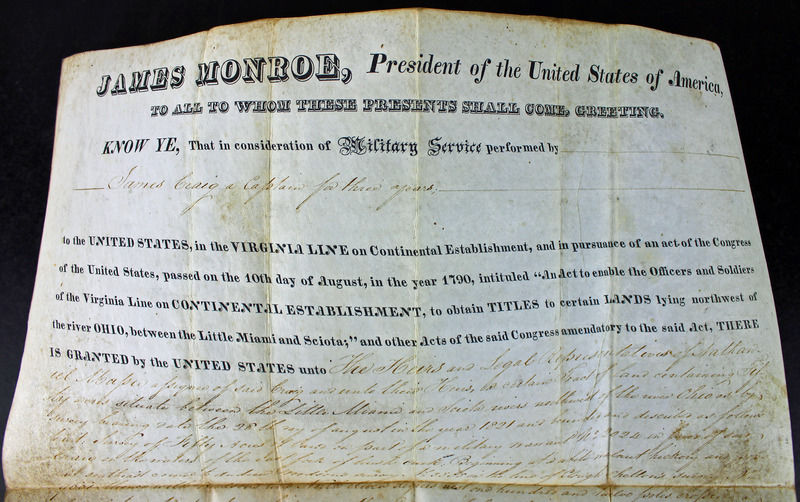 JAMES MONROE, President of the United States of America,
TO ALL TO WHOM THESE PRESENTS SHALL COME, GREETING.
KNOW YE, That in consideration of Military Service performed by
James Craig a Captain for three years,
to the UNITED STATES, in the VIRGINIA LINE on Continental Establishment, and in pursuance of an act of the Congress
of the United States, passed on the 10th day of August, in the year 1790, intituled "An Act to enable the Officers and Soldiers
of the Virginia Line on CONTINENTAL ESTABLISHMENT, to obtain TITLES to certain LANDS lying northwest of
the river OHIO, between the Little Miami and Sciota;" and other Acts of the said Congress amendatory to the said Act, THERE
IS GRANTED by the UNITED STATES unto The Heirs and Legal Representatives of Nathan
iel assignee of said Craig and unto their Heirs, a certain tract of land containing
acres situate between the Little Miami and Sciota rivers northwest of the river Ohio as by
Survey bearing date the 28th day of August in the year 1821 and bounded and described as follows
Survey of of a military warrant 224 in favor of said
Craig on the waters of the of Beginning at
hundred and twelve poles